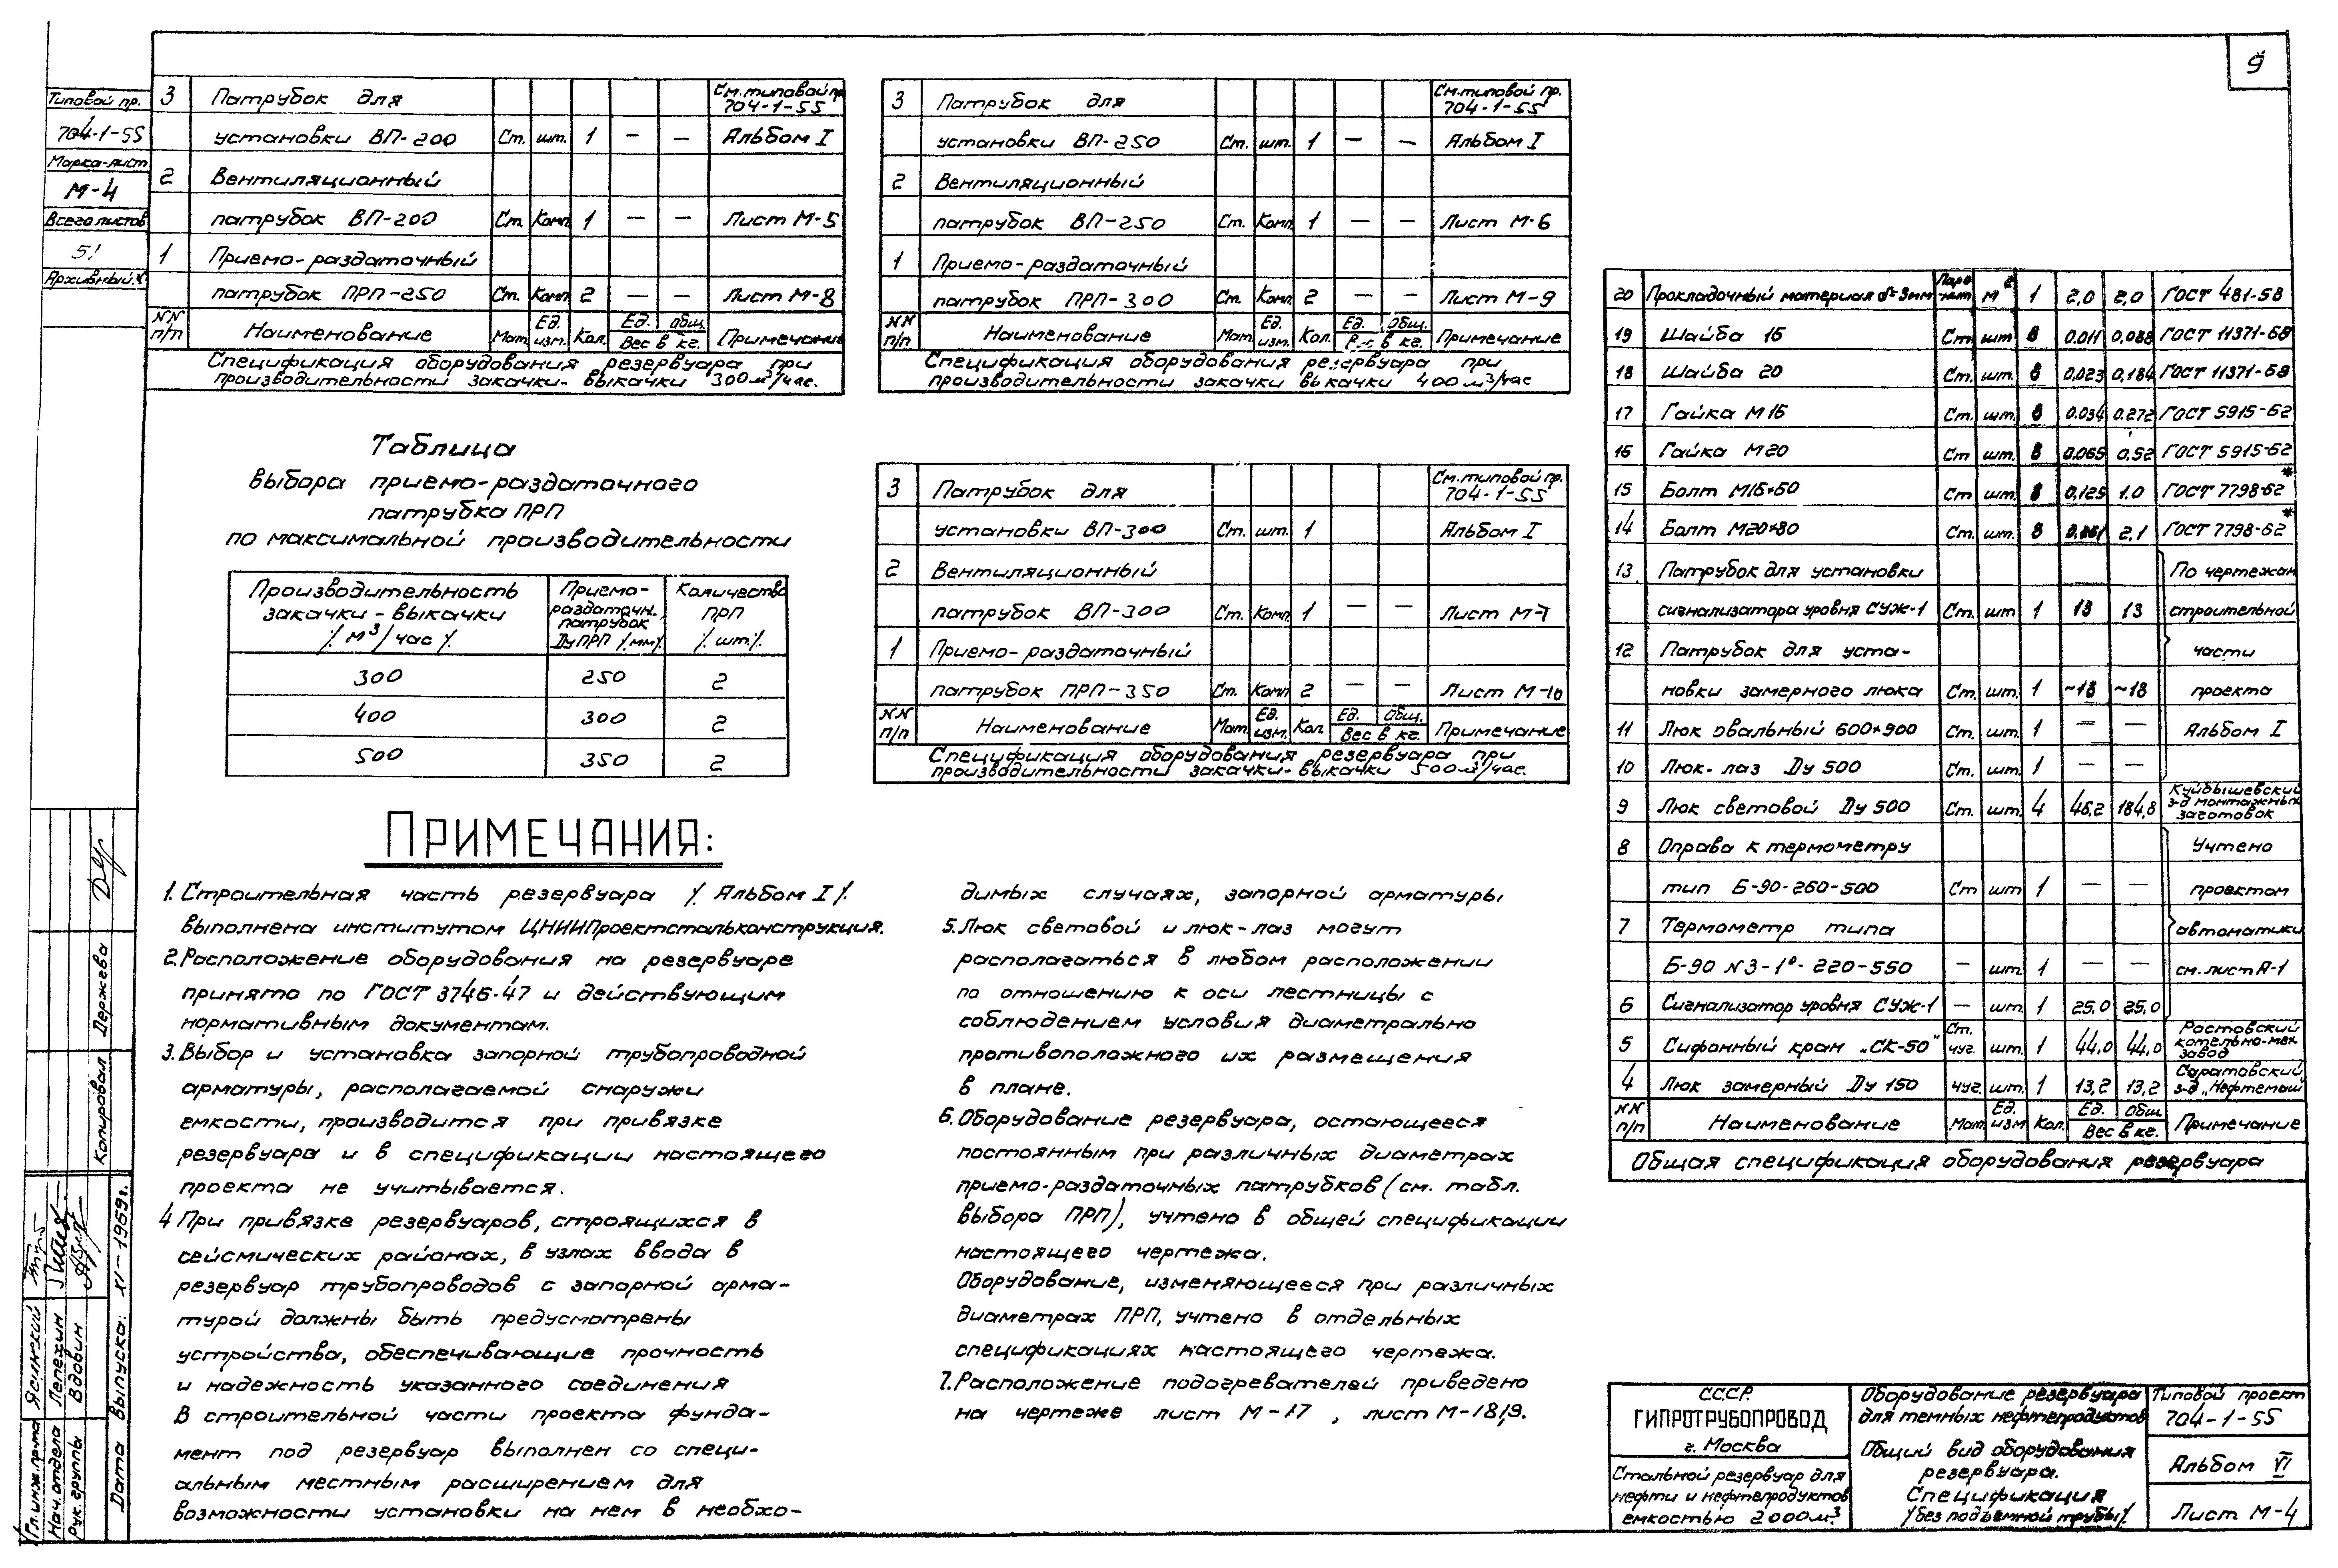 9
Типовой пр.
704-1-55
Марка-лист
М-4
Всего листов
Архивный
3 Патрубок для См. типовой пр. 704-1-55
установки ВП-200 Ст. шт. 1 — — Альбом I
2 Вентиляционный
патрубок ВП-200 Ст. Комп 1 — — Лист М-5
1 Приемо-раздаточный
патрубок ПРП-250 Ст. Комп 2 — — Лист М-8
NN п/п Наименование Мат. Ед. изм. Кол. Ед. Общ. Вес в кг. Примечание
Спецификация оборудования резервуара при
производительности закачки-выкачки 300 м³/час.
3 Патрубок для См. типовой пр. 704-1-55
установки ВП-250 Ст. шт. 1 — — Альбом I
2 Вентиляционный
патрубок ВП-250 Ст. Комп 1 — — Лист М-6
1 Приемо-раздаточный
патрубок ПРП-300 Ст. Комп. 2 — — Лист М-9
NN п/п Наименование Мат. Ед. изм. Кол. Ед. Общ. Вес в кг. Примечание
Спецификация оборудования резервуара при
производительности закачки выкачки 400 м³/час
Таблица
выбора приемо-раздаточного
патрубка ПРП
по максимальной производительности
Производительность закачки-выкачки /м³/час/ Приемо-раздаточн. патрубок Ду ПРП /мм/ Количество ПРП /шт./
300 250 2
400 300 2
500 350 2
3 Патрубок для См. типовой пр. 704-1-55
установки ВП-300 Ст. шт. 1 Альбом I
2 Вентиляционный
патрубок ВП-300 Ст. Комп. 1 — — Лист М-7
1 Приемо-раздаточный
патрубок ПРП-350 Ст. Комп 2 — — Лист М-10
NN п/п Наименование Мат. Ед. изм. Кол. Ед. Общ. Вес в кг. Примечание
Спецификация оборудования резервуара при
производительности закачки-выкачки 500 м³/час.
ПРИМЕЧАНИЯ:
1. Строительная часть резервуара /Альбом I/
выполнена институтом ЦНИИПроектстальконструкция.
2. Расположение оборудования на резервуаре
принято по ГОСТ 3746-47 и действующим
нормативным документам.
3. Выбор и установка запорной трубопроводной
арматуры, располагаемой снаружи
емкости, производится при привязке
резервуара и в спецификации настоящего
проекта не учитывается.
4 При привязке резервуаров, строящихся в
сейсмических районах, в узлах ввода в
резервуар трубопроводов с запорной арма-
турой должны быть предусмотрены
устройства, обеспечивающие прочность
и надежность указанного соединения
В строительной части проекта фунда-
мент под резервуар выполнен со специ-
альным местным расширением для
возможности установки на нем в необхо-
димых случаях, запорной арматуры
5. Люк световой и люк-лаз могут
располагаться в любом расположении
по отношению к оси лестницы с
соблюдением условия диаметрально
противоположного их размещения
в плане.
6. Оборудование резервуара, остающееся
постоянным при различных диаметрах
приемо-раздаточных патрубков (см. табл.
выбора ПРП), учтено в общей спецификации
настоящего чертежа.
Оборудование, изменяющееся при различных
диаметрах ПРП, учтено в отдельных
спецификациях настоящего чертежа.
7. Расположение подогревателей приведено
на чертеже лист М-17, лист М-18,19.
20 Прокладочный материал δ=3мм Паронит м² 1 2,0 2,0 ГОСТ 481-58
19 Шайба 16 Ст. шт. 8 0.011 0,088 ГОСТ 11371-68
18 Шайба 20 Ст. шт. 8 0,023 0,184 ГОСТ 11371-68
17 Гайка М16 Ст. шт. 8 0.034 0.272 ГОСТ 5915-62
16 Гайка М20 Ст шт. 8 0,065 0,52 ГОСТ 5915-62
15 Болт М16*60 Ст шт. 8 0,125 1.0 ГОСТ 7798-62*
14 Болт М20*80 Ст. шт. 8 2,1 ГОСТ 7798-62*
13 Патрубок для установки По чертежам
сигнализатора уровня СУЖ-1 Ст. шт 1 13 13 строительной
12 Патрубок для уста- части
новки замерного люка Ст. шт. 1 ~18 ~18 проекта
11 Люк овальный 600*900 Ст. шт. 1 — — Альбом I
10 Люк-лаз Ду 500 Ст. шт. 1 — —
9 Люк световой Ду 500 Ст. шт. 4 46,2 184,8 Куйбышевский з-д монтажных заготовок
8 Оправа к термометру Учтено
тип Б-90-260-500 Ст шт 1 — — проектом
7 Термометр типа автоматики
Б-90 N3-1°-220-550 — шт. 1 — — см. лист А-1
6 Сигнализатор уровня СУЖ-1 — шт. 1 25,0 25,0
5 Сифонный кран „СК-50" Ст. чуг. шт. 1 44,0 44,0 Ростовский котельно-мех завод
4 Люк замерный Ду 150 чуг. шт. 1 13,2 13,2 Саратовский з-д „Нефтемаш"
NN п/п Наименование Мат. Ед. изм Кол. Ед. Общ Вес в кг. Примечание
Общая спецификация оборудования резервуара
СССР.
ГИПРОТРУБОПРОВОД
г. Москва
Стальной резервуар для
нефти и нефтепродуктов
емкостью 2000м³.
Оборудование резервуара
для темных нефтепродуктов
Общий вид оборудования
резервуара.
Спецификация
/без подъемной трубы/
Типовой проект
704-1-55
Альбом VI
Лист М-4
Копировал Держгева
Гл. инж. пр-та Ясинский
Нач. отдела Лепехин
Рук. группы Вдовин
Дата выпуска: XI-1969г.